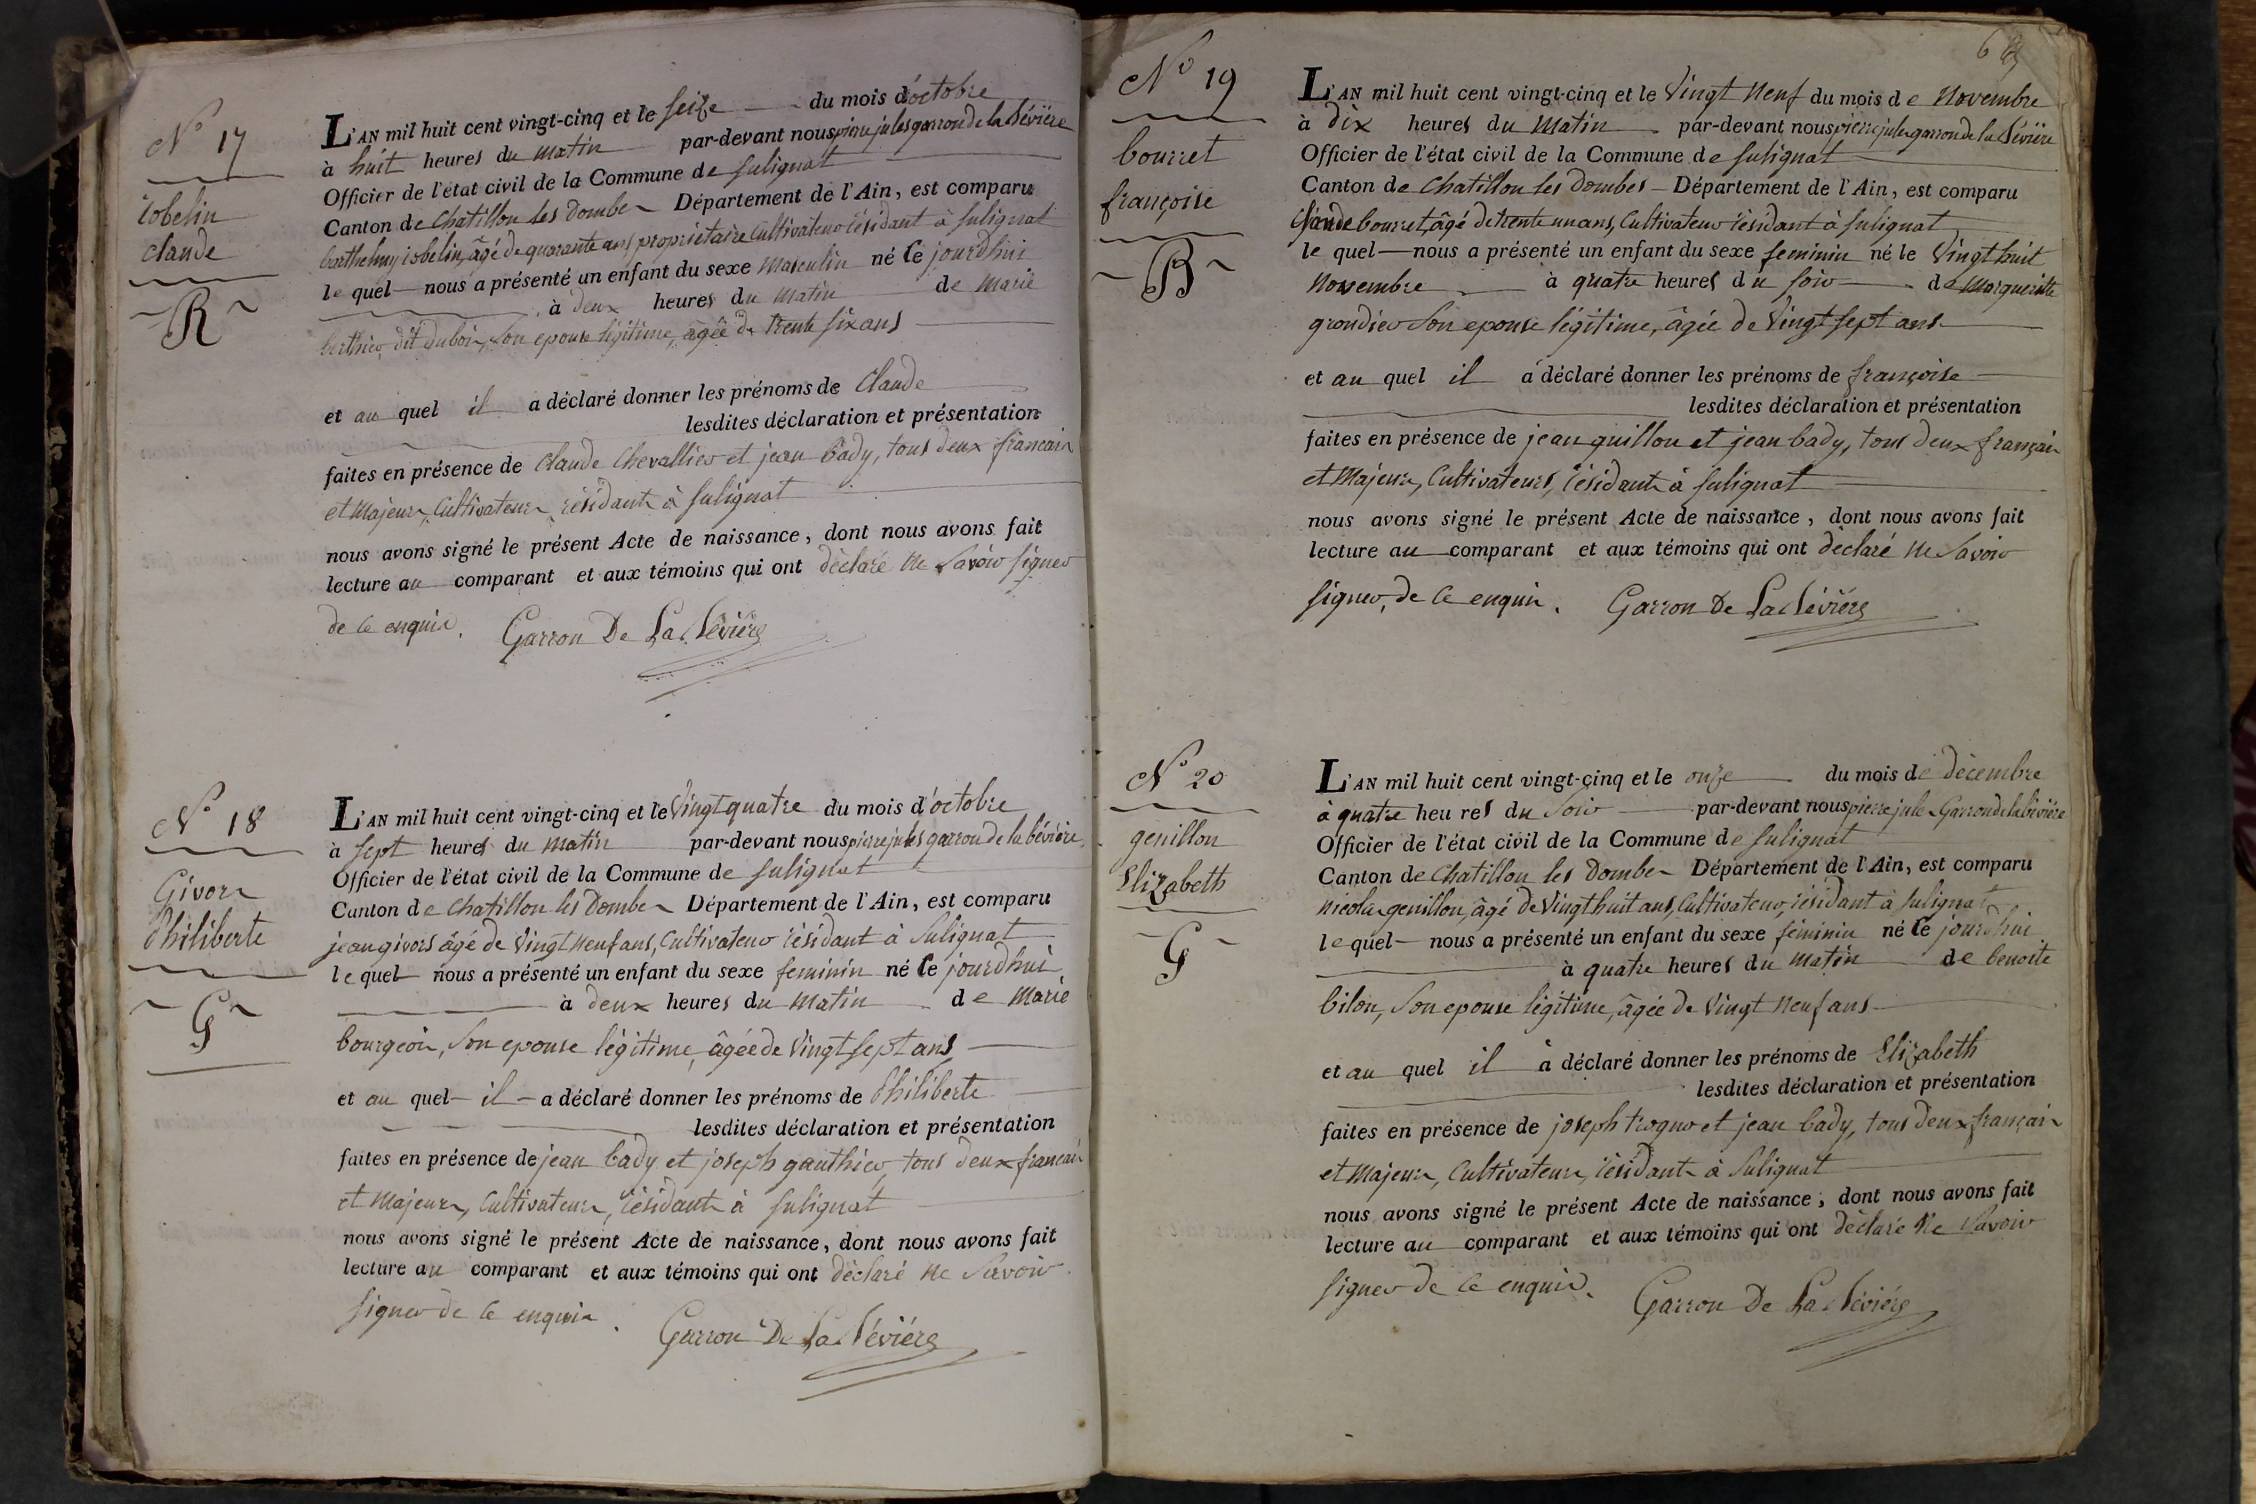 N° 17
robelin
claude
R
L'AN mil huit cent vingt-cinq et le seize du mois d'octobre
à huit heures du matin par-devant nous pierre jules garron de la bévière
Officier de l'état civil de la Commune de sulignat
Canton de Chatillon les dombes Département de l'Ain, est comparu
barthelmy robelin, âgé de quarante ans propriétaire Cultivateur résidant à sulignat
le quel nous a présenté un enfant du sexe masculin né le jourdhui
à deux heures du matin de marie
berthier dit dubois, son epouse légitime, agée de trente six ans
et au quel il a déclaré donner les prénoms de claude
lesdites déclaration et présentation
faites en présence de claude Chevallier et jean bady, tous deux francais
et majeurs, Cultivateurs résidants à sulignat
nous avons signé le présent Acte de naissance, dont nous avons fait
lecture au comparant et aux témoins qui ont déclaré ne savoir signer
de ce enquis. Garron De La Bévière
N° 18
Givors
Philiberte
G
L'AN mil huit cent vingt-cinq et le Vingt quatre du mois d'octobre
à sept heures du matin par-devant nous pierre jules garron de la bévière
Officier de l'état civil de la Commune de sulignat
Canton de Chatillon les Dombes Département de l'Ain, est comparu
jean givors âgé de Vingt neuf ans, Cultivateur résidant à Sulignat
le quel nous a présenté un enfant du sexe feminin né le jourdhui
à deux heures du matin de marie
bourgeois, son epouse légitime, âgée de Vingt sept ans
et au quel il a déclaré donner les prénoms de Philiberte
lesdites déclaration et présentation
faites en présence de jean bady et joseph gauthier, tous deux francais
et majeurs, Cultivateurs, résidants à sulignat
nous avons signé le présent Acte de naissance, dont nous avons fait
lecture au comparant et aux témoins qui ont déclaré ne savoir
signer de ce enquis. Garron De La Bévière
N° 19
bourret
françoise
B
L'AN mil huit cent vingt-cinq et le Vingt neuf du mois de novembre
à dix heures du matin par-devant nous pierre jules garron de la Bévière
Officier de l'état civil de la Commune de sulignat
Canton de Chatillon les dombes Département de l'Ain, est comparu
Claude bourret, âgé de trente un ans, Cultivateur résidant à sulignat
le quel nous a présenté un enfant du sexe feminin né le Vingt huit
novembre à quatre heures du soir de marguerite
grondier son epouse légitime, âgée de Vingt sept ans
et au quel il a déclaré donner les prénoms de françoise
lesdites déclaration et présentation
faites en présence de jean guillon et jean bady, tous deux français
et majeurs, Cultivateurs, résidants à sulignat
nous avons signé le présent Acte de naissance, dont nous avons fait
lecture au comparant et aux témoins qui ont déclaré ne savoir
signer, de ce enquis. Garron De La Bévière
N° 20
genillon
Elizabeth
G
L'AN mil huit cent vingt-cinq et le onze du mois de décembre
à quatre heures du soir par-devant nous pierre jules Garron de la bévière
Officier de l'état civil de la Commune de sulignat
Canton de Chatillon les Dombes Département de l'Ain, est comparu
nicolas genillon, âgé de Vingt huit ans, Cultivateur, résidant à sulignat
le quel nous a présenté un enfant du sexe féminin né le jourdhui
à quatre heures du matin de benoite
bilon, son epouse légitime, âgée de Vingt neuf ans
et au quel il a déclaré donner les prénoms de Elizabeth
lesdites déclaration et présentation
faites en présence de joseph et jean bady, tous deux français
et majeurs, Cultivateurs, résidants à Sulignat
nous avons signé le présent Acte de naissance, dont nous avons fait
lecture au comparant et aux témoins qui ont déclaré ne savoir
signer de ce enquis. Garron De La Bévière